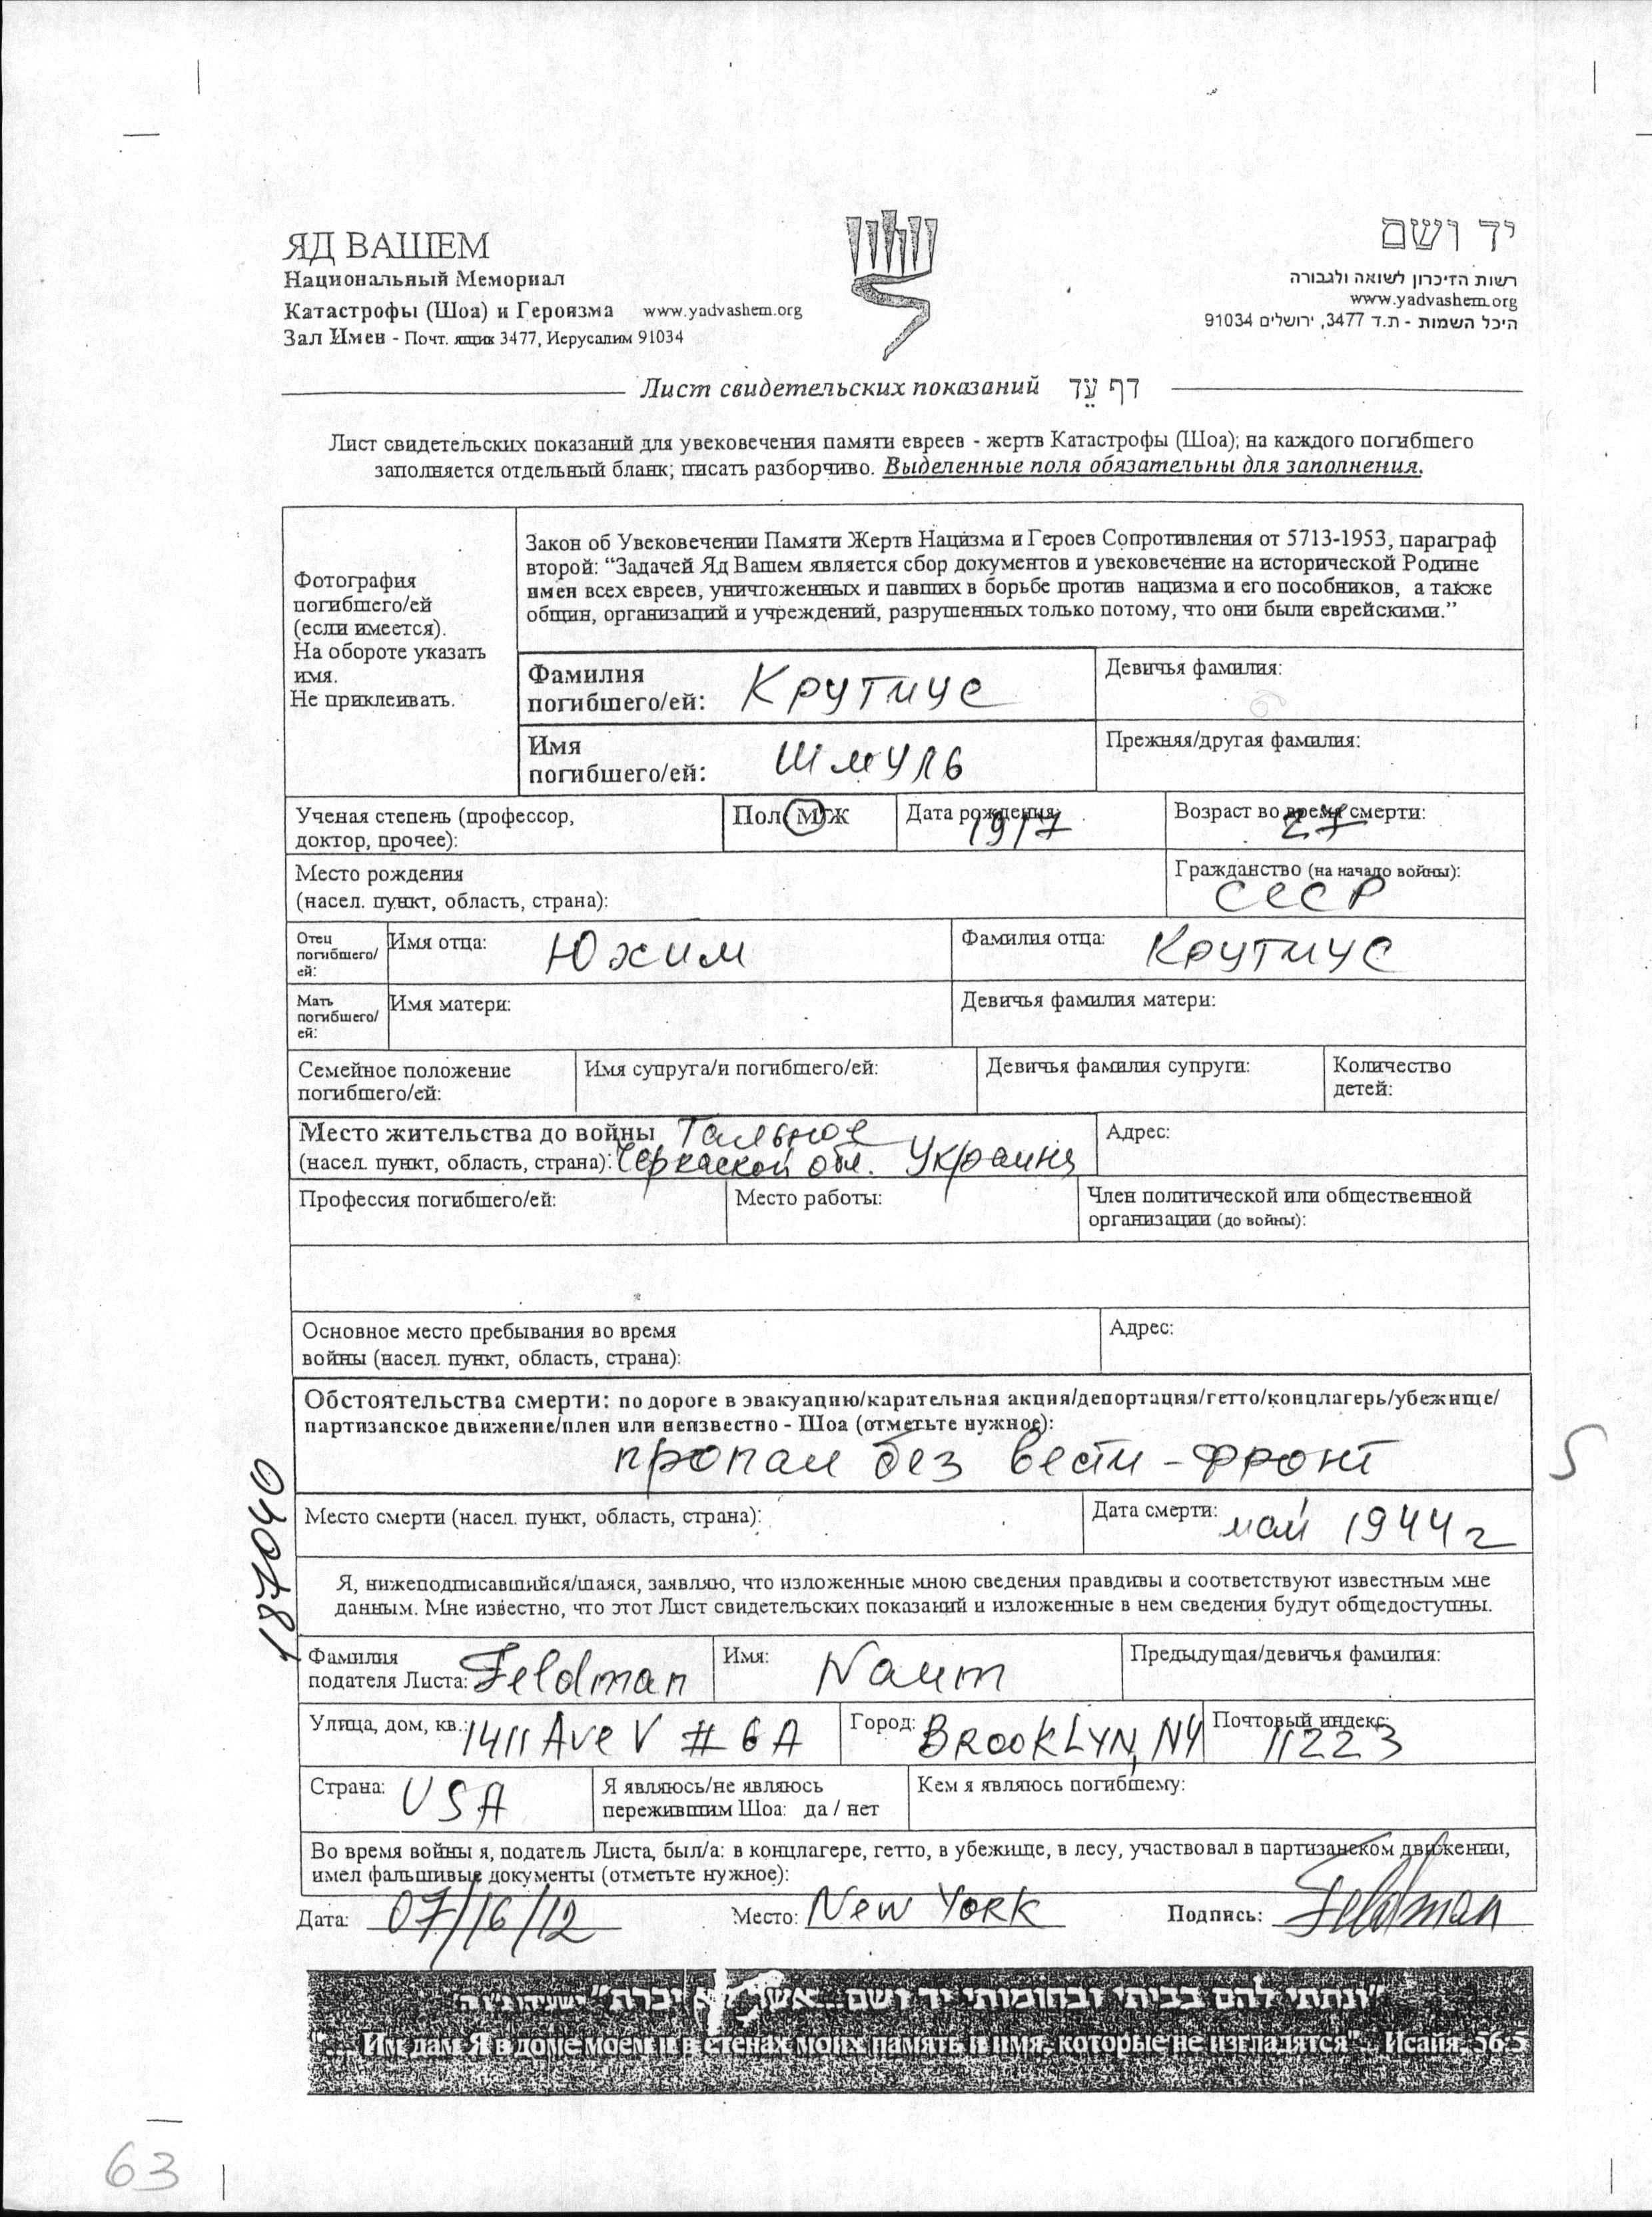 ЯД ВАШЕМ
Национальный Мемориал
Катастрофы (Шоа) и Героизма www.yadvashem.org
Зал Имен - Почт. ящик 3477, Иерусалим 91034
יד ושם
רשות הזיכרון לשואה ולגבורה
www.yadvashem.org
היכל השמות - ת.ד 3477, ירושלים 91034
Лист свидетельских показаний דף עֵד
Лист свидетельских показаний для увековечения памяти евреев - жертв Катастрофы (Шоа); на каждого погибшего
заполняется отдельный бланк; писать разборчиво. Выделенные поля обязательны для заполнения.
Фотография
погибшего/ей
(если имеется).
На обороте указать
имя.
Не приклеивать.
Закон об Увековечении Памяти Жертв Нацизма и Героев Сопротивления от 5713-1953, параграф
второй: “Задачей Яд Вашем является сбор документов и увековечение на исторической Родине
имен всех евреев, уничтоженных и павших в борьбе против нацизма и его пособников, а также
общин, организаций и учреждений, разрушенных только потому, что они были еврейскими.”
Фамилия
погибшего/ей: Крутиус
Девичья фамилия:
Имя
погибшего/ей: Шмуль
Прежняя/другая фамилия:
Ученая степень (профессор,
доктор, прочее):
Пол М/Ж
Дата рождения: 1917
Возраст во время смерти: 27
Место рождения
(насел. пункт, область, страна):
Гражданство (на начало войны):
СССР
Отец
погибшего/
ей:
Имя отца: Юхим
Фамилия отца: Крутиус
Мать
погибшего/
ей:
Имя матери:
Девичья фамилия матери:
Семейное положение
погибшего/ей:
Имя супруга/и погибшего/ей:
Девичья фамилия супруги:
Количество
детей:
Место жительства до войны Тальное
(насел. пункт, область, страна): Черкаской обл. Украина
Адрес:
Профессия погибшего/ей:
Место работы:
Член политической или общественной
организации (до войны):
Основное место пребывания во время
войны (насел. пункт, область, страна):
Адрес:
Обстоятельства смерти: по дороге в эвакуацию/карательная акция/депортация/гетто/концлагерь/убежище/
партизанское движение/плен или неизвестно - Шоа (отметьте нужное):
пропал без вести - фронт
S
187040
Место смерти (насел. пункт, область, страна):
Дата смерти: май 1944 г
Я, нижеподписавшийся/шаяся, заявляю, что изложенные мною сведения правдивы и соответствуют известным мне
данным. Мне известно, что этот Лист свидетельских показаний и изложенные в нем сведения будут общедоступны.
Фамилия
подателя Листа: Feldman
Имя: Naum
Предыдущая/девичья фамилия:
Улица, дом, кв.: 1411 Ave V # 6A
Город: BROOKLYN, NY
Почтовый индекс: 11223
Страна: USA
Я являюсь/не являюсь
пережившим Шоа: да / нет
Кем я являюсь погибшему:
Во время войны я, податель Листа, был/а: в концлагере, гетто, в убежище, в лесу, участвовал в партизанском движении,
имел фальшивые документы (отметьте нужное):
Дата: 07/16/12
Место: New York
Подпись: Feldman
"ונתתי להם בביתי ובחומותי יד ושם...אשר לא יכרת" ישעיהו נ"ו ה'
"... Им дам Я в доме моем и в стенах моих память и имя, которые не изгладятся". Исаия, 56:5
63